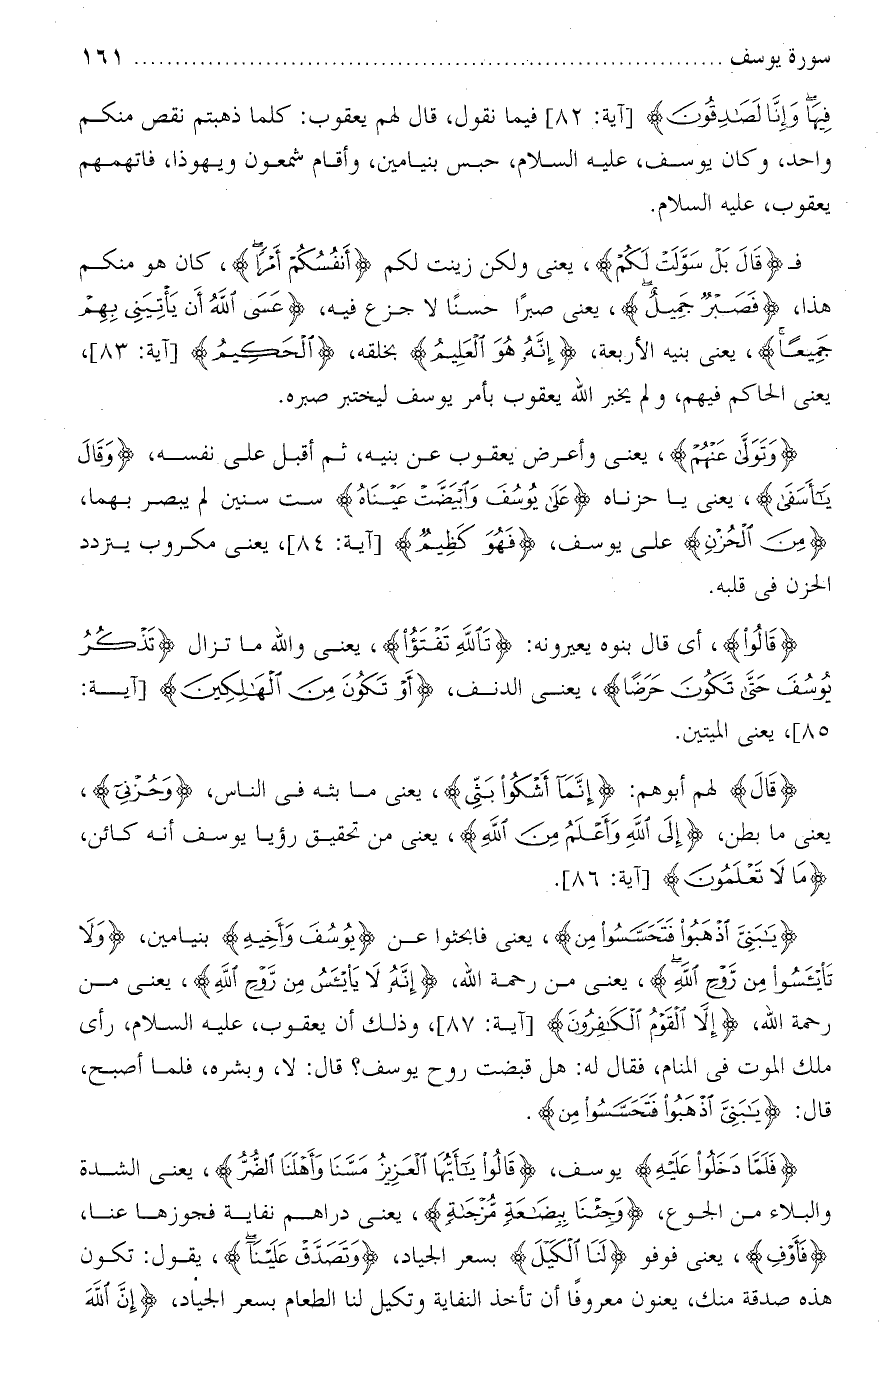 سورة يوسف ........................................................................ ١٦١
فِيهَاۖ وَإِنَّا لَصَٰدِقُونَ﴾ [آية: ٨٢] فيما نقول، قال لهم يعقوب: كلما ذهبتم نقص منكم
واحد، وكان يوسف، عليه السلام، حبس بنيامين، وأقام شمعون ويهوذا، فاتهمهم
يعقوب، عليه السلام.
فـ ﴿قَالَ بَلْ سَوَّلَتْ لَكُمْ﴾، يعنى ولكن زينت لكم ﴿أَنفُسُكُمْ أَمْرًاۖ﴾، كان هو منكم
هذا، ﴿فَصَبْرٌ جَمِيلٌۖ﴾، يعنى صبرًا حسنًا لا جزع فيه، ﴿عَسَى ٱللَّهُ أَن يَأْتِيَنِى بِهِمْ
جَمِيعًاۚ﴾، يعنى بنيه الأربعة، ﴿إِنَّهُۥ هُوَ ٱلْعَلِيمُ﴾ بخلقه، ﴿ٱلْحَكِيمُ﴾ [آية: ٨٣]،
يعنى الحاكم فيهم، ولم يخبر الله يعقوب بأمر يوسف ليختبر صبره.
﴿وَتَوَلَّىٰ عَنْهُمْ﴾، يعنى وأعرض يعقوب عن بنيه، ثم أقبل على نفسه، ﴿وَقَالَ
يَٰٓأَسَفَىٰ﴾، يعنى يا حزناه ﴿عَلَىٰ يُوسُفَ وَٱبْيَضَّتْ عَيْنَاهُ﴾ ست سنين لم يبصر بهما،
﴿مِنَ ٱلْحُزْنِ﴾ على يوسف، ﴿فَهُوَ كَظِيمٌ﴾ [آية: ٨٤]، يعنى مكروب يتردد
الحزن فى قلبه.
﴿قَالُوا۟﴾، أى قال بنوه يعيرونه: ﴿تَٱللَّهِ تَفْتَؤُا۟﴾، يعنى والله ما تزال ﴿تَذْكُرُ
يُوسُفَ حَتَّىٰ تَكُونَ حَرَضًا﴾، يعنى الدنف، ﴿أَوْ تَكُونَ مِنَ ٱلْهَٰلِكِينَ﴾ [آية:
٨٥]، يعنى الميتين.
﴿قَالَ﴾ لهم أبوهم: ﴿إِنَّمَآ أَشْكُوا۟ بَثِّى﴾، يعنى ما بثه فى الناس، ﴿وَحُزْنِىٓ﴾،
يعنى ما بطن، ﴿إِلَى ٱللَّهِ وَأَعْلَمُ مِنَ ٱللَّهِ﴾، يعنى من تحقيق رؤيا يوسف أنه كائن،
﴿مَا لَا تَعْلَمُونَ﴾ [آية: ٨٦].
﴿يَٰبَنِىَّ ٱذْهَبُوا۟ فَتَحَسَّسُوا۟ مِن﴾، يعنى فابحثوا عن ﴿يُوسُفَ وَأَخِيهِ﴾ بنيامين، ﴿وَلَا
تَا۟يْـَٔسُوا۟ مِن رَّوْحِ ٱللَّهِۖ﴾، يعنى من رحمة الله، ﴿إِنَّهُۥ لَا يَا۟يْـَٔسُ مِن رَّوْحِ ٱللَّهِ﴾، يعنى من
رحمة الله، ﴿إِلَّا ٱلْقَوْمُ ٱلْكَٰفِرُونَ﴾ [آية: ٨٧]، وذلك أن يعقوب، عليه السلام، رأى
ملك الموت فى المنام، فقال له: هل قبضت روح يوسف؟ قال: لا، وبشره، فلما أصبح،
قال: ﴿يَٰبَنِىَّ ٱذْهَبُوا۟ فَتَحَسَّسُوا۟ مِن﴾.
﴿فَلَمَّا دَخَلُوا۟ عَلَيْهِ﴾ يوسف، ﴿قَالُوا۟ يَٰٓأَيُّهَا ٱلْعَزِيزُ مَسَّنَا وَأَهْلَنَا ٱلضُّرُّ﴾، يعنى الشدة
والبلاء من الجوع، ﴿وَجِئْنَا بِبِضَٰعَةٍ مُّزْجَىٰةٍ﴾، يعنى دراهم نفاية فجوزها عنا،
﴿فَأَوْفِ﴾، يعنى فوفو ﴿لَنَا ٱلْكَيْلَ﴾ بسعر الجياد، ﴿وَتَصَدَّقْ عَلَيْنَآۖ﴾، يقول: تكون
هذه صدقة منك، يعنون معروفًا أن تأخذ النفاية وتكيل لنا الطعام بسعر الجياد، ﴿إِنَّ ٱللَّهَ